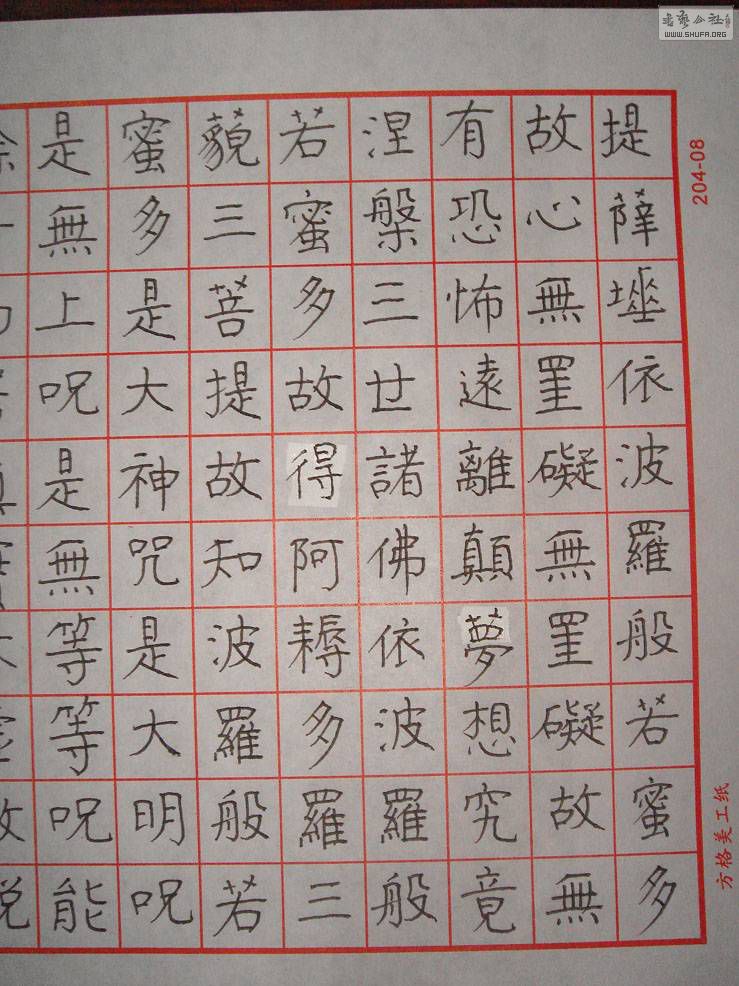 提薩埵依波羅般若蜜多
故心無罣礙無罣礙故無
有恐怖遠離顛夢想究竟
涅槃三世諸佛依波羅般
若蜜多故得阿耨多羅三
藐三菩提故知波羅般若
蜜多是大神咒是大明呪
是無上呪是無等等呪能
204-08
方格美工纸
書藝公社
WWW.SHUFA.ORG